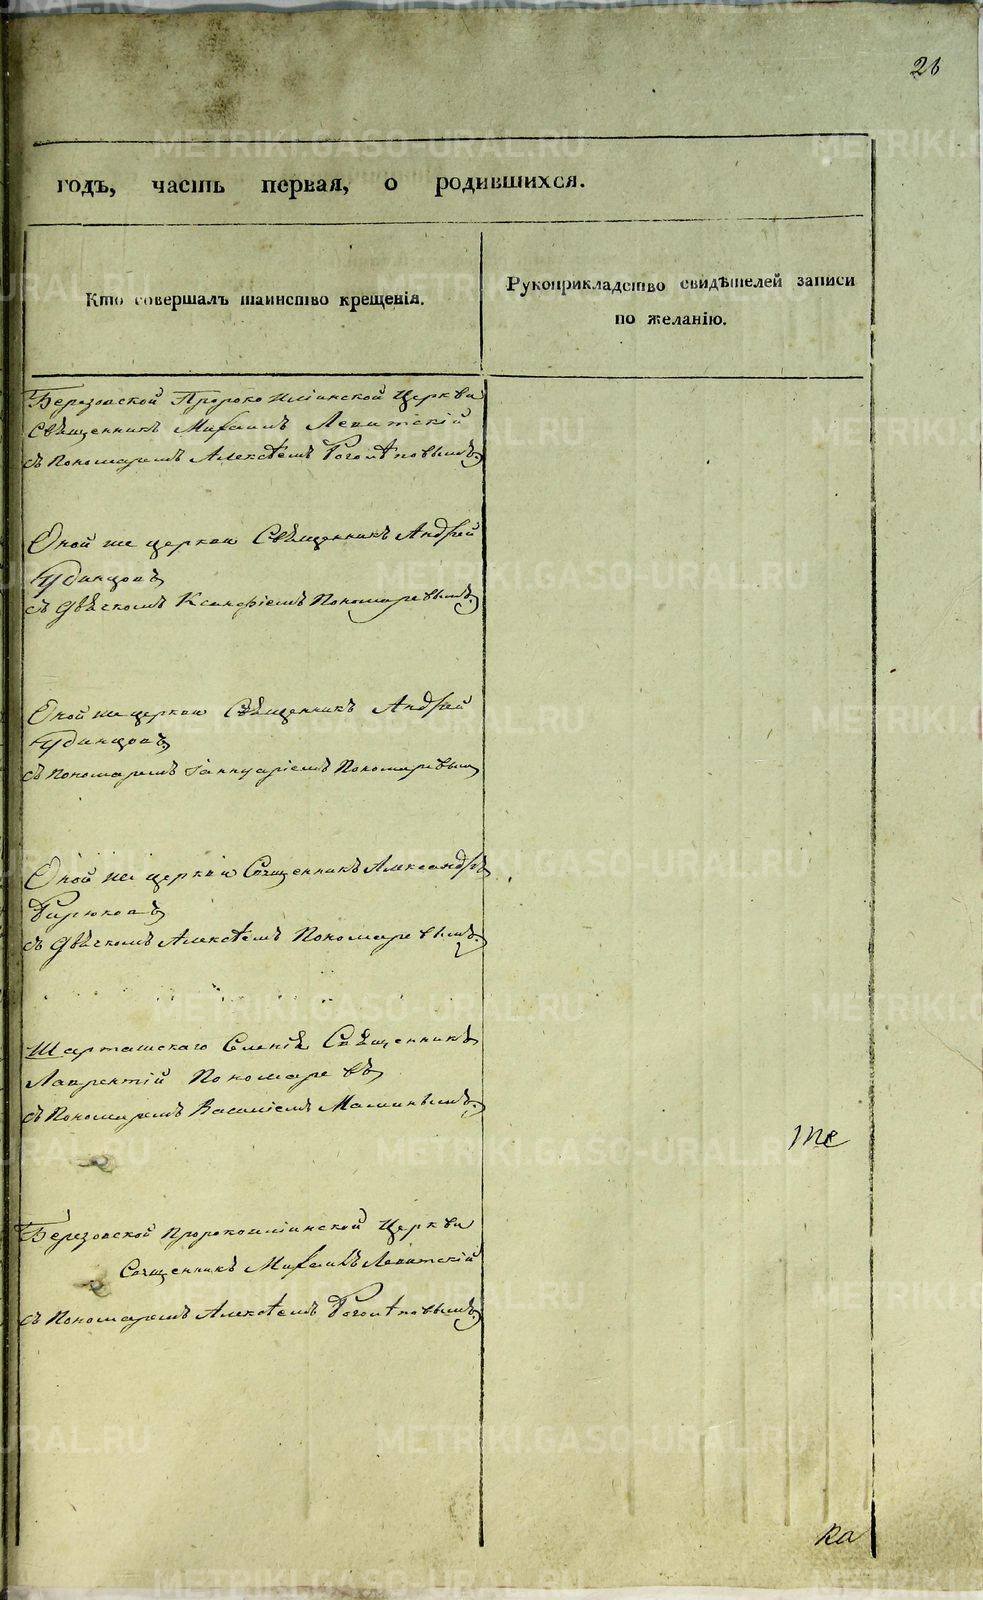 26
годъ, часть первая, о родившихся.
Кто совершалъ таинство крещенія.
Рукоприкладство свидѣтелей записи
по желанію.
Березовской Пророко Иліинской Церкви
Священникъ Михаилъ Левитскій
съ Пономаремъ Алексѣемъ
Оной же церкви Священникъ Андрей
Удинцовъ
съ Дьячкомъ Ксанфіемъ Пономаревымъ.
Оной же церкви Священникъ Андрей
Удинцовъ
съ Пономаремъ Іаннуаріемъ Пономаревым
Оной же церкви Священникъ Александръ
Бирюковъ
съ Дьячкомъ Алексѣемъ Пономаревымъ.
Шарташскаго Селенія Священникъ
Лаврентій Пономаревъ
съ Пономаремъ Василіемъ Маминымъ.
те
Березовской Пророкоиліинской Церкви
Священникъ Михаилъ Левитскій
съ Пономаремъ Алексѣемъ
ка
METRIKI.GASO-URAL.RU